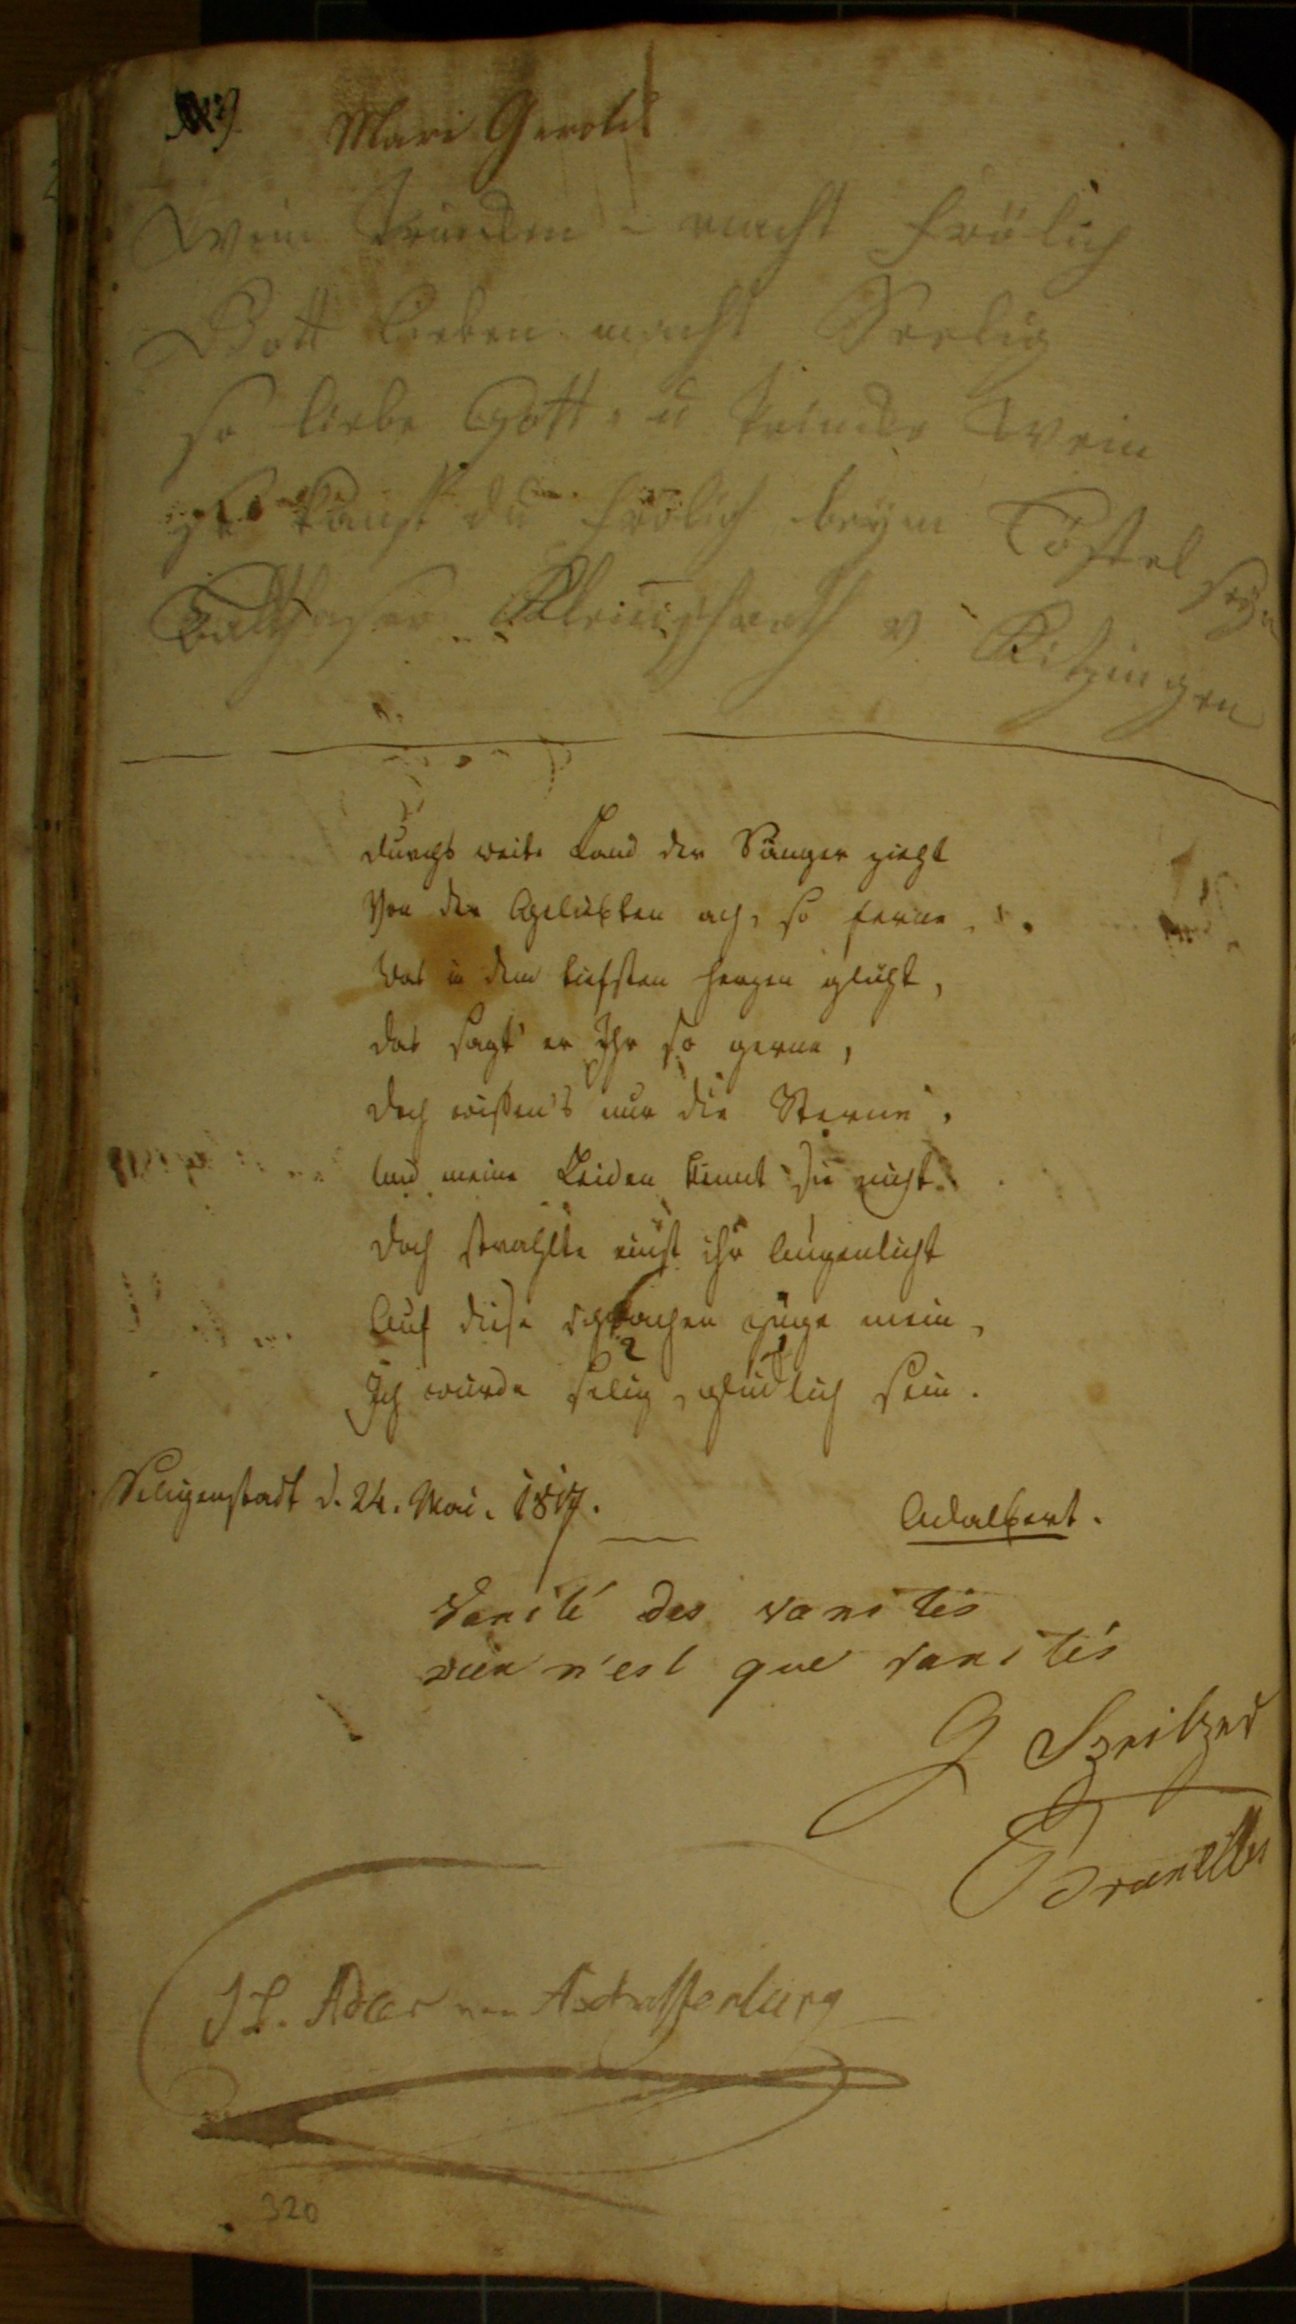 Mari Gerold
Wein Trincken - macht Frölich
Gott Lieben macht Seelig
so liebe Gott, u Trincke Wein
so kanst du frölich beym Töstel seyn
Balthasar v Kitzingen
Durchs weite Land der Sänger zieht
Von der Geliebten ach, so ferne,
Was in dem tiefsten Herzen glüht,
das sagt' er Ihr so gerne,
doch wißen's nur die Sterne,
Und meine Leiden kennt sie nicht.
doch strahlte einst ihr Augenlicht
Auf diese schwachen Züge mein,
Ich würde selig, glücklich sein.
Seligenstadt d. 24. Mai. 1817.
Adalbert.
Vanité des vanités
rien n'est que vanités
J
J L. Adler von Aschaffenburg
320